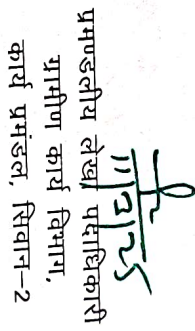 11/2/25
प्रमण्डलीय लेखा पदाधिकारी
ग्रामीण कार्य विभाग,
कार्य प्रमंडल, सिवान-2